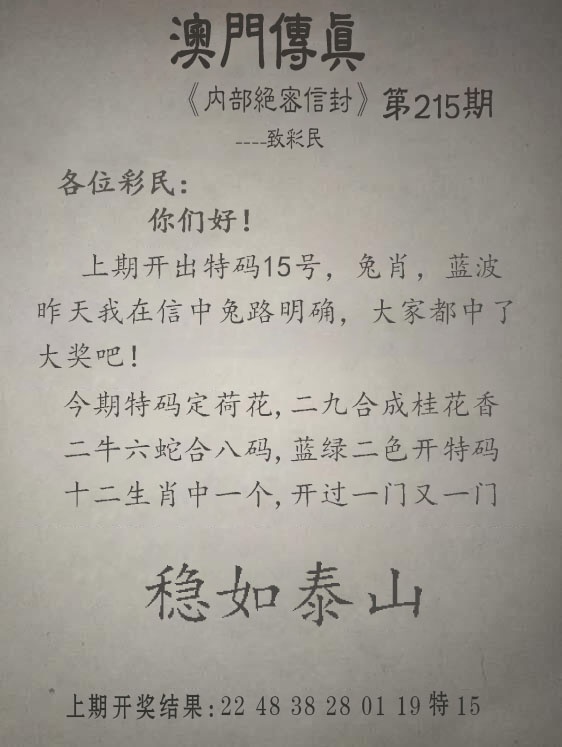 澳門傳眞
《内部絕密信封》第215期
----致彩民
各位彩民：
你们好！
上期开出特码15号，兔肖，蓝波
昨天我在信中兔路明确，大家都中了
大奖吧！
今期特码定荷花,二九合成桂花香
二牛六蛇合八码,蓝绿二色开特码
十二生肖中一个,开过一门又一门
稳如泰山
上期开奖结果:22 48 38 28 01 19 特 15